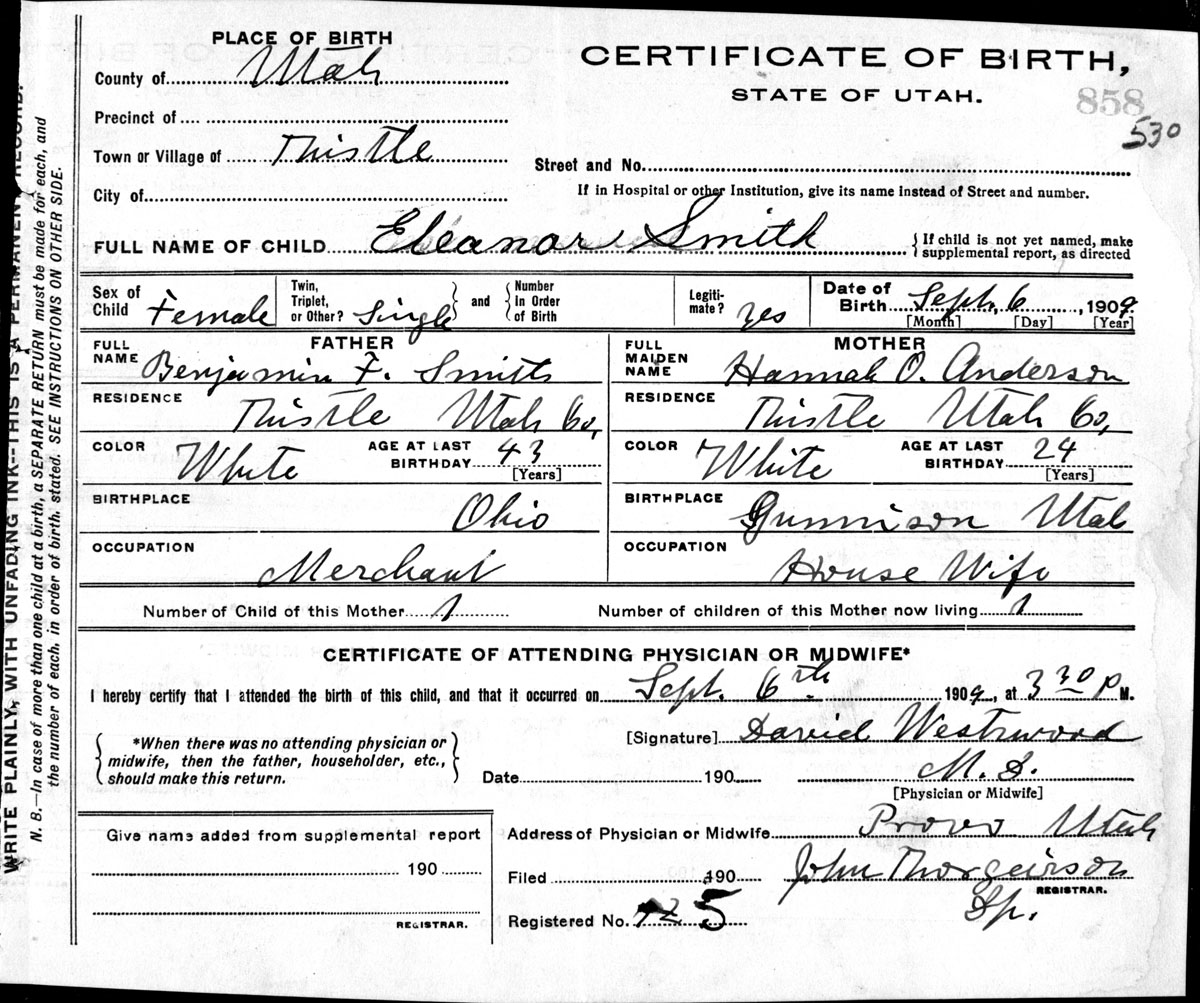 PLACE OF BIRTH
County of Utah
Precinct of
Town or Village of Thistle
City of
CERTIFICATE OF BIRTH,
STATE OF UTAH.
858
530
Street and No.
If in Hospital or other Institution, give its name instead of Street and number.
FULL NAME OF CHILD Eleanor Smith
{If child is not yet named, make
supplemental report, as directed
Sex of Child Female
Twin, Triplet, or Other? Single
and
Number In Order of Birth
Legitimate? Yes
Date of Birth Sept. 6, 1909.
[Month] [Day] [Year]
FATHER
FULL NAME Benjamin F. Smith
RESIDENCE Thistle Utah Co,
COLOR White AGE AT LAST BIRTHDAY 43
[Years]
BIRTHPLACE Ohio
OCCUPATION Merchant
MOTHER
FULL MAIDEN NAME Hannah O. Anderson
RESIDENCE Thistle Utah Co,
COLOR White AGE AT LAST BIRTHDAY 24
[Years]
BIRTHPLACE Gunnison Utah
OCCUPATION House Wife
Number of Child of this Mother 1 Number of children of this Mother now living 1
CERTIFICATE OF ATTENDING PHYSICIAN OR MIDWIFE*
I hereby certify that I attended the birth of this child, and that it occurred on Sept. 6th 1909, at 3 30 P M.
{*When there was no attending physician or
midwife, then the father, householder, etc.,
should make this return.}
[Signature] David Westwood
Date 190 M. D.
[Physician or Midwife]
Give name added from supplemental report
190
REGISTRAR.
Address of Physician or Midwife Provo Utah
Filed 190 John Thorgeirson
REGISTRAR.
Registered No. 5
WRITE PLAINLY, WITH UNFADING INK--THIS IS A PERMANENT RECORD.
N. B.—In case of more than one child at a birth, a SEPARATE RETURN must be made for each, and
the number of each, in order of birth, stated. SEE INSTRUCTIONS ON OTHER SIDE.